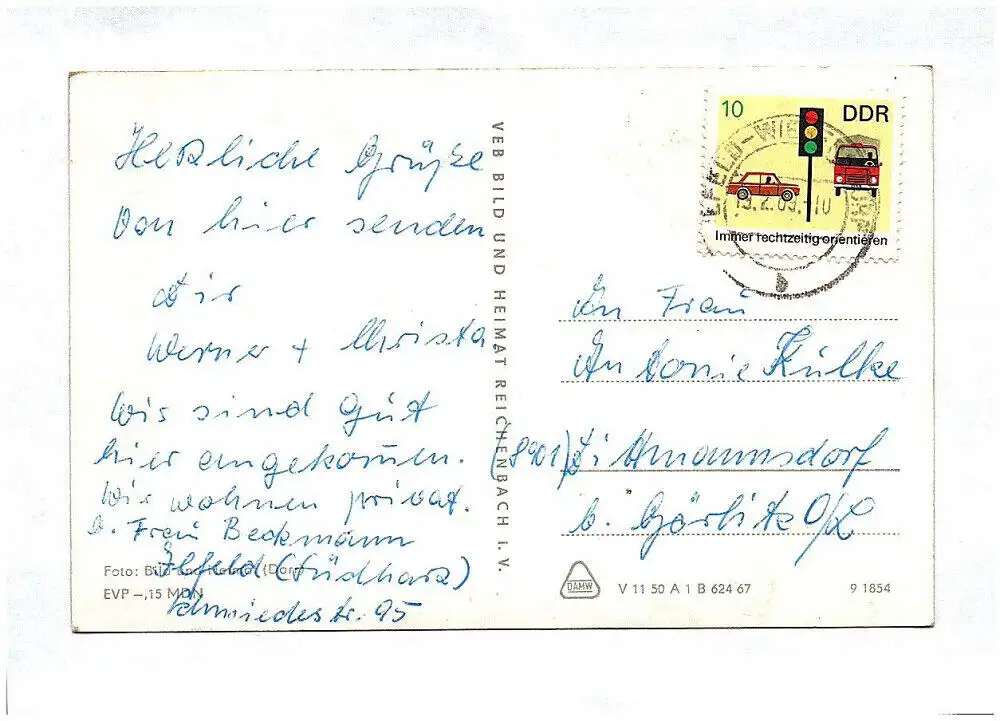 Herzliche Grüße
Von hier senden
Dir
Werner + Christa
Wir sind Gut
hier angekom̄en.
Wir wohnen privat.
b. Frau Beckmann
Ilfeld (Südharz)
Schmiedestr. 95
Foto: Bild und Heimat (Dorr)
EVP –,15 MDN
VEB BILD UND HEIMAT REICHENBACH i. V.
10 DDR
Immer rechtzeitig orientieren
b
An Frau
Antonie Külke
(8901) Dittmannsdorf
b. Görlitz O/L
DAMW
V 11 50 A 1 B 624 67
9 1854